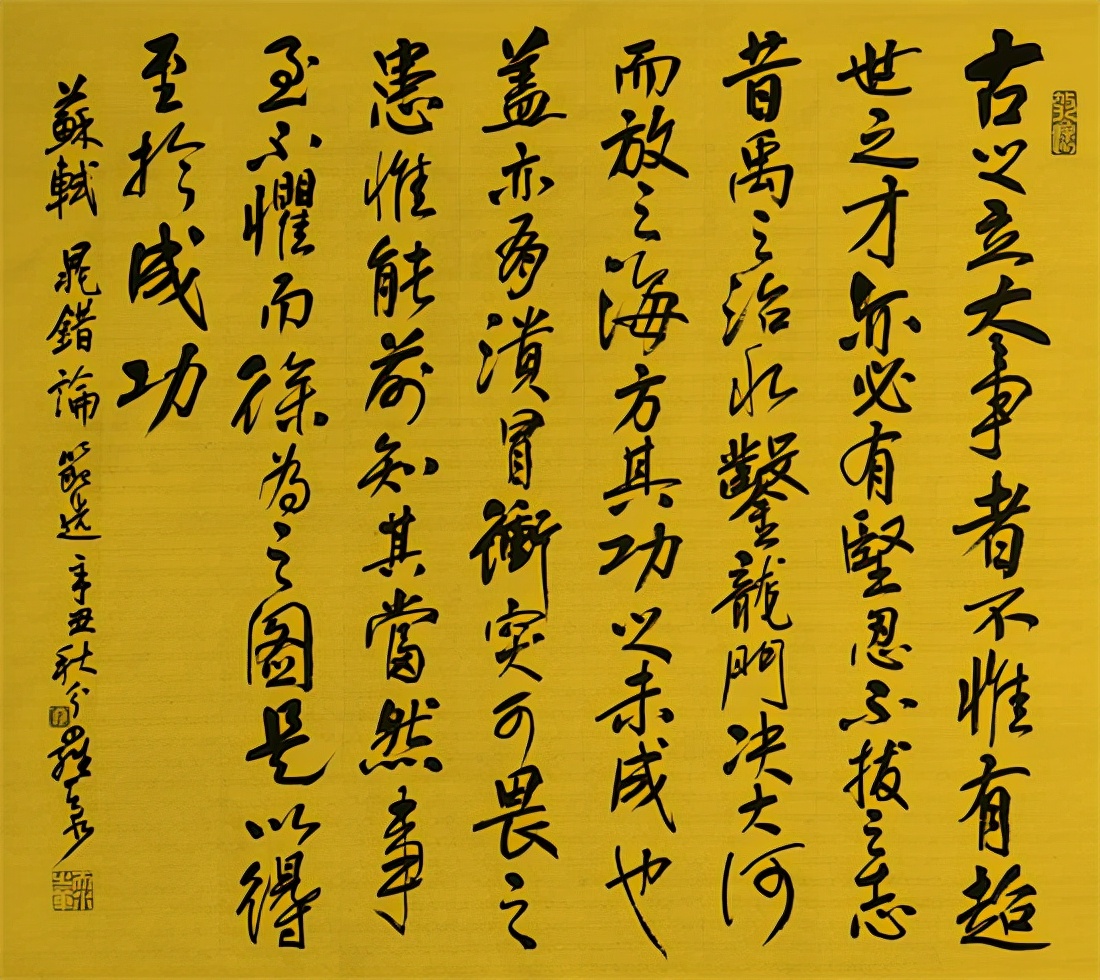 古之立大事者不惟有超
世之才亦必有堅忍不拔之志
昔禹之治水鑿龍門决大河
而放之海方其功之未成也
盖亦有潰冒衝突可畏之
患惟能前知其當然事
至不懼而徐為之圖是以得
至扵成功
蘇軾晁錯論節選辛丑秋分